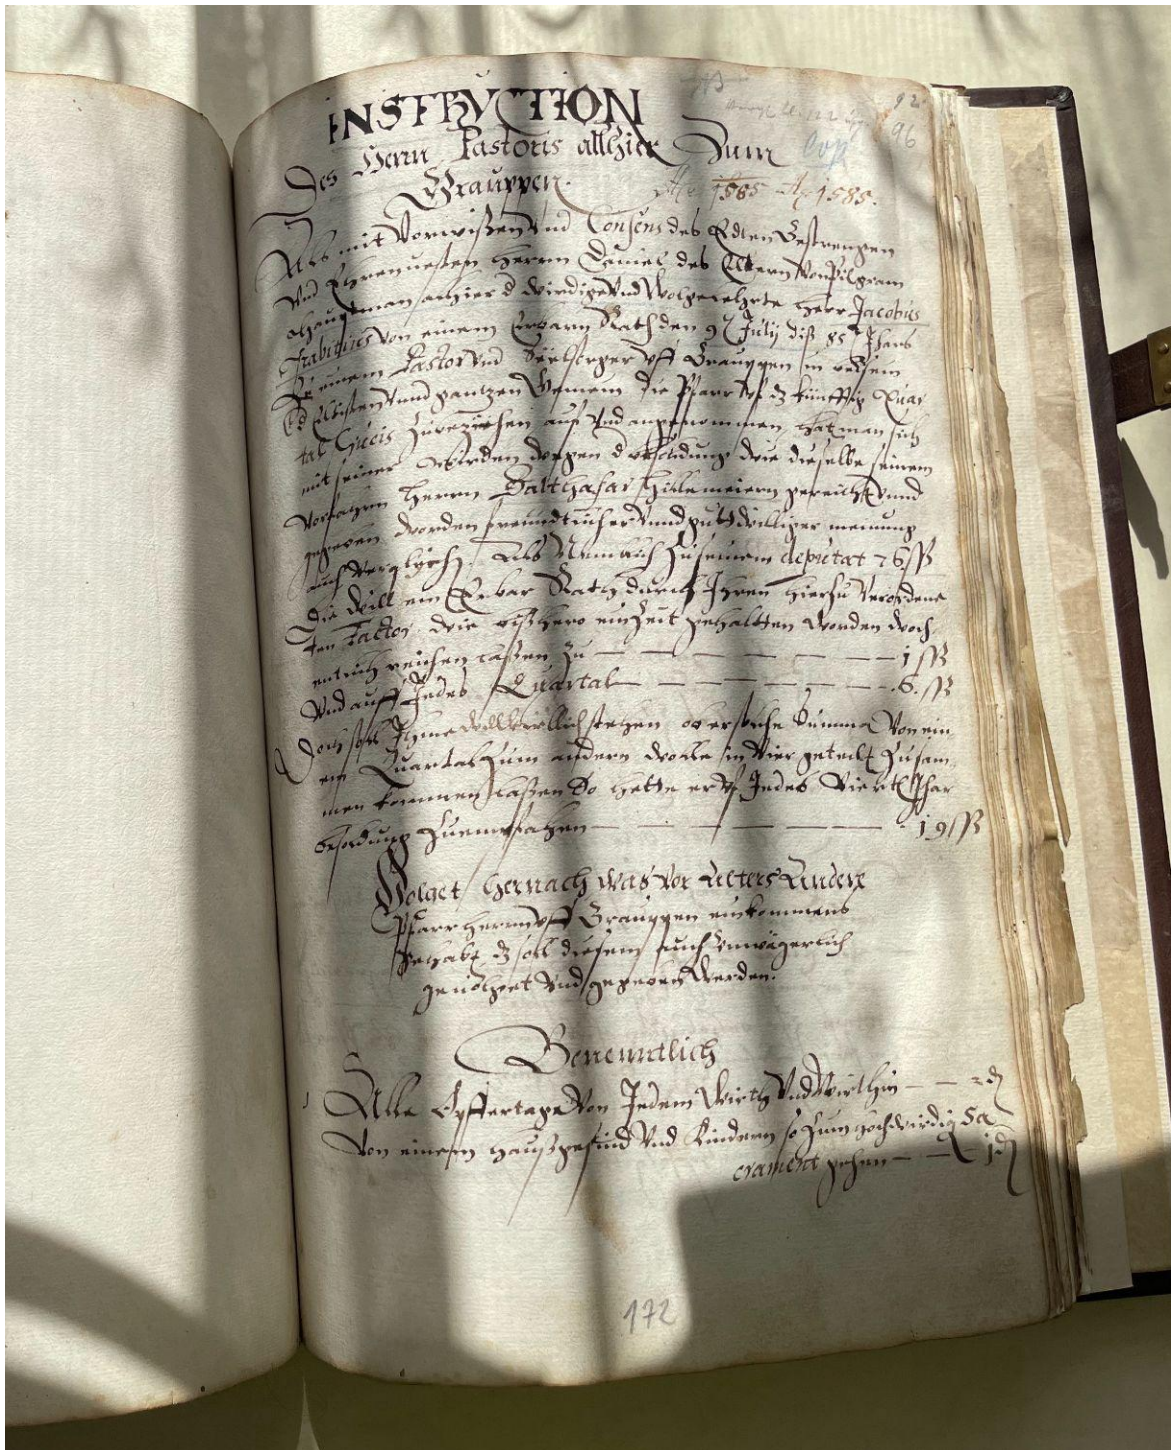 INSTRVCTION
Des Herrn Pastoris allhier Zum
Graupen.
Ao 1585 Ao 1585.
92
96
Als mit Vorwißen Vnd Consens des Edlen Gestrengen
Vnd Ehrenuesten Herrn Daniel des Eltern Von Pilgram
Haupman alhier d wirdige Vnd Wolgelehrte Herr Jacobus
Von einem Erbarn Rath den 9 Julij diß 85 Jhars
Zu einem Pastor Vnd Seelsorger vff Grauppen in
Vnd gantzen Gemein die Pfarr vf dz künfftig Quar
tal Crucis Zubeziehen auf Vnd angenommen, hat man sich
mit seiner Wirden wegen d besoldung wie dieselbe seinem
Vorfahrn Herrn Balthasar gereicht Vnnd
gegeben worden freundtlicher Vnnd guttwilliger meinung
auch Verglichen. Als Nemblich Zu seinem deputat 76 ßß
Die will ein Erbar Rath durch Ihren hierzu Verordene
ten Factor, wie bißhero ein Zeit gehaltten worden woch
entlich reichen laßen Zu — — — — — 1 ßß
Vnd auff Jedes Quartal — — — — — 6. ßß
Doch soll Ihme willkürlich stehen ob er solche Summa Von ein
em Quartal Zum andern wolle in Vier geteilt Zusam
men kommen laßen So hette er vf Jedes Viertl Jhar
besoldung Zuempfahen — — — — — 19 ßß
Volget hernach was vor Alters Andere
Pfarrherrn vff Grauppen einkommens
gehabt, dz soll diesem auch vnwägerlich
geuolget Vnd gegeben Werden.
Benenntlich
1 Alle Opffertage Von Jedem Wirth Vnd Wirthin — — 2 d
Von einem Haußgesind Vnd Kindern so Zum Hochwirdig Sa
crament gehen — — 1 d
172